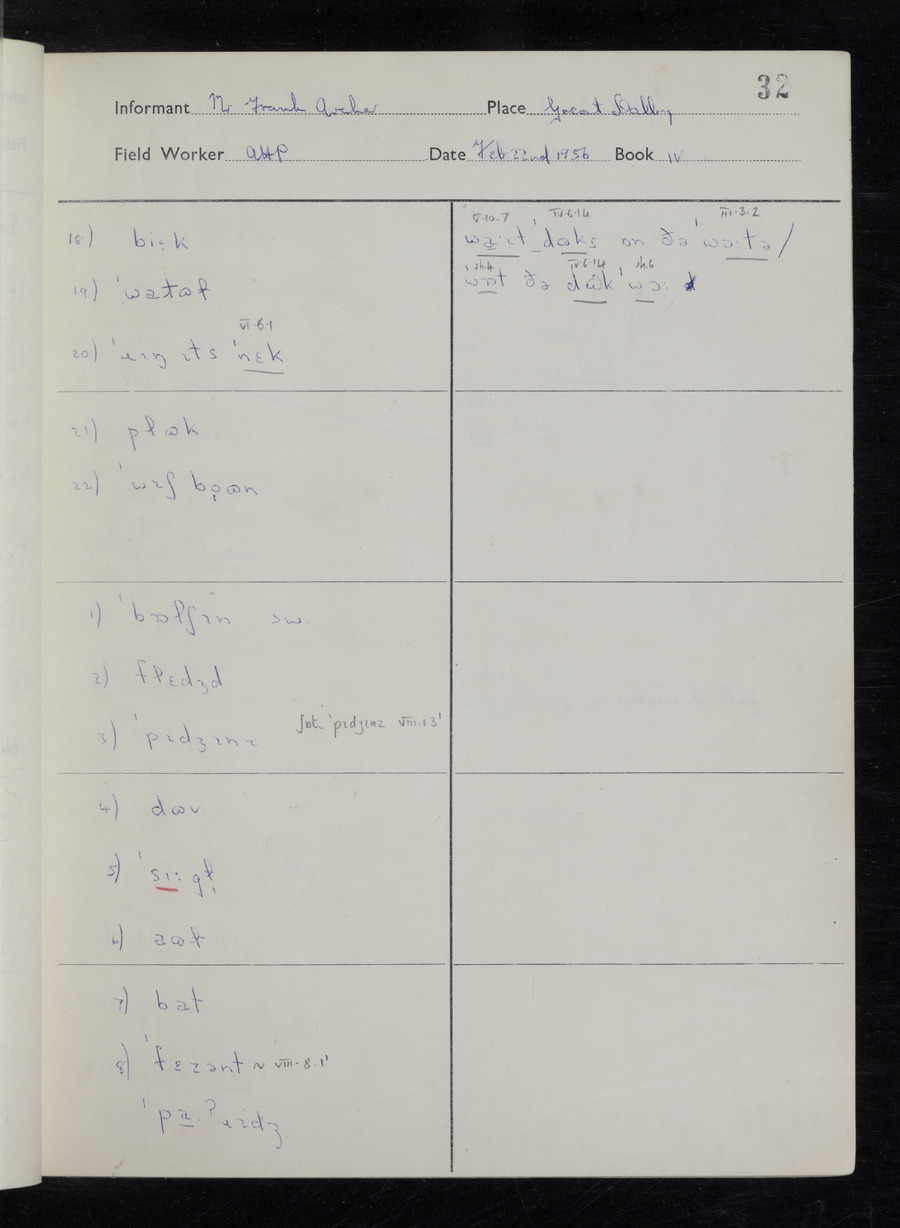 32
Informant Mr Frank Archer Place Great Dalby
Field Worker AHP Date Feb 22nd 1956 Book IV
18) bi:k
19) ˈwatəf
VI·6·1
20) ˈɹɪŋ ɪts ˈnɛk
21) plɷk
22) ˈwɪʃ bọən
1) ˈbɒlʃɪn sw.
2) flɛdʒd
3) ˈpɪdʒɪnz ʃɒt ˈpɪdʒɪnz VIII·1·3'
4) dɷv
5) ˈsi: gɫ̩
6) aɷɫ
7) bat
8) ˈfɛzənt ~ VIII·8·1'
ˈpa:ʔɹɪdʒ
V·10·7 IV·6·14 III·3·2
ˈdɷks ɒn ðə ˈwɔ:tə/
sh.4 IV·6·14 sh.6
ðə